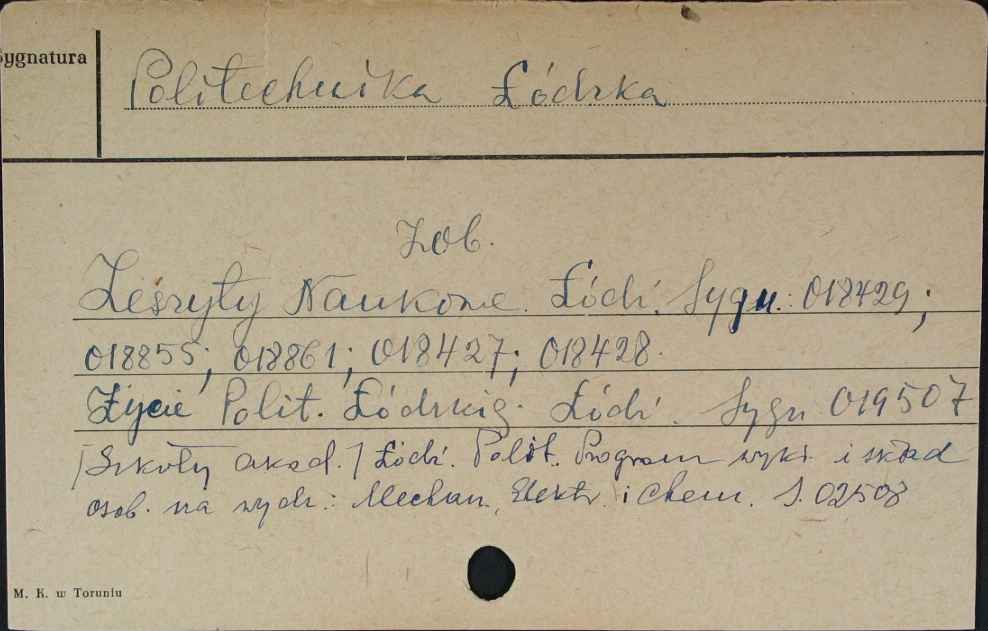 Sygnatura
Politechnika Łódzka
Zob.
Zeszyty Naukowe. Łódź. Sygn.: 018429;
018855; 018861; 018427; 018428.
Życie Polit. Łódzkiej. Łódź. Sygn 019507
[Szkoły akad.] Łódź. Polit. Program wykł. i skład
osob. na wydz.: Mechan., Elektr. i Chem. S. 02508
M. K. w Toruniu